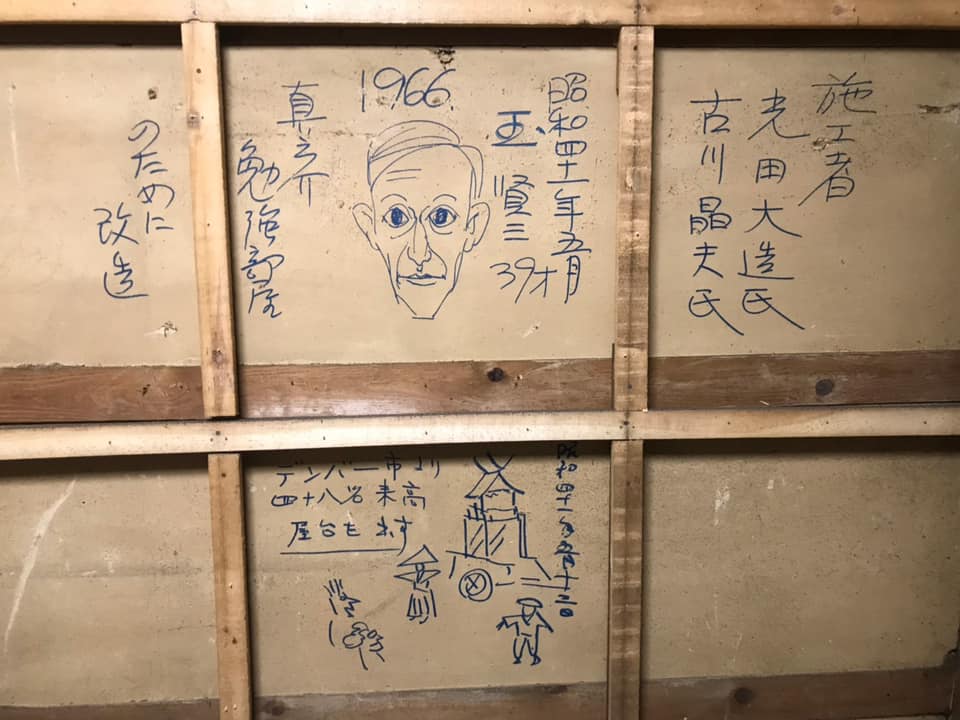 施工者
光田大造氏
古川晶夫氏
昭和四十一年五月
玉 賢三 39才
1966.
真之介
勉強部屋
のために
改造
昭和四十一年五月十二日
デンバー市より
四十八名来高
屋台を出す